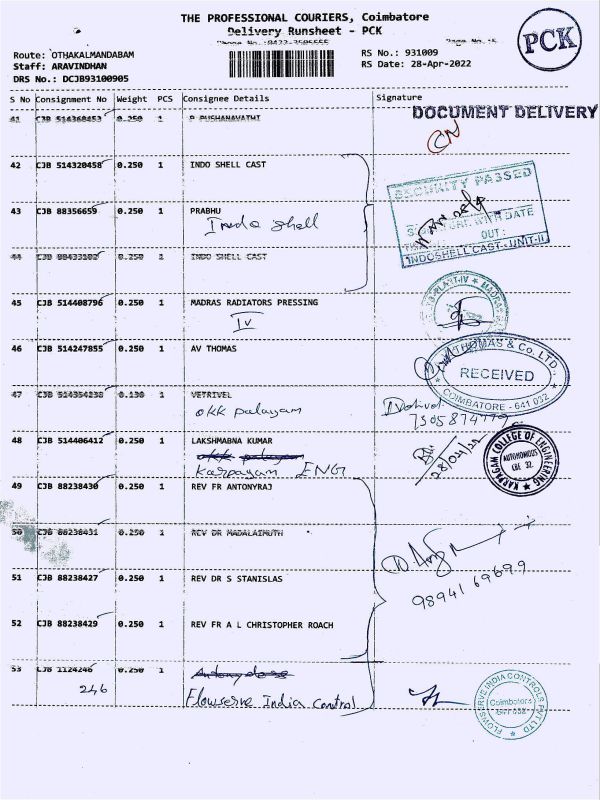 THE PROFESSIONAL COURIERS, Coimbatore
Delivery Runsheet - PCK
PCK
Route: OTHAKALMANDABAM
Staff: ARAVINDHAN
DRS No.: DCJB93100905
RS No.: 931009
RS Date: 28-Apr-2022
S No Consignment No Weight PCS Consignee Details Signature
DOCUMENT DELIVERY
41 CJB 514368453 0.250 1 P PUSHANAVATHI
CN
42 CJB 514320458 0.250 1 INDO SHELL CAST
SECURITY PASSED
43 CJB 88356659 0.250 1 PRABHU
Indo shell
WITH DATE
OUT:
INDOSHELL CAST - UNIT-II
44 CJB 88433102 0.250 1 INDO SHELL CAST
45 CJB 514408796 0.250 1 MADRAS RADIATORS PRESSING
IV
46 CJB 514247855 0.250 1 AV THOMAS
THOMAS & Co. LTD.,
RECEIVED
COIMBATORE - 641 032
47 CJB 514354238 0.130 1 VETRIVEL
OKK palayam
48 CJB 514406412 0.250 1 LAKSHMABNA KUMAR
Karpagam ENG
28/04/22
KARPAGAM COLLEGE OF ENGINEERING
AUTONOMOUS
CBE 32
49 CJB 88238430 0.250 1 REV FR ANTONYRAJ
50 CJB 88238431 0.250 1 REV DR MADALAIMUTH
51 CJB 88238427 0.250 1 REV DR S STANISLAS
9894169699
52 CJB 88238429 0.250 1 REV FR A L CHRISTOPHER ROACH
53 CJB 1124246 0.250 1
246
Flowserve India Control
FLOWSERVE INDIA CONTROLS PVT LTD
Coimbatore